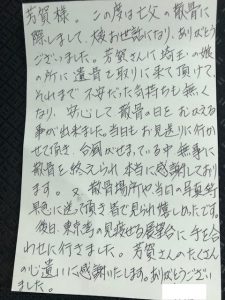 芳賀様。この度は亡父の散骨に
際しまして、大変お世話になり、ありがとう
ございました。芳賀さんに埼玉の娘
の所に遺骨を取りに来て頂けて、
それまで不安だった気持ちも無く
なり、安心して散骨の日をむかえる
事が出来ました。当日もお見送りに行か
せて頂き、台風がせまっている中無事に
散骨を終えられ本当に感謝しており
ます。又、散骨場所や当日の写真等
早急に送って頂き皆で見られ嬉しかったです。
後日、東京湾の見渡せる展望台に手を合
わせに行きました。芳賀さんのたくさん
の心遣いに感謝いたします。ありがとうござい
ました。